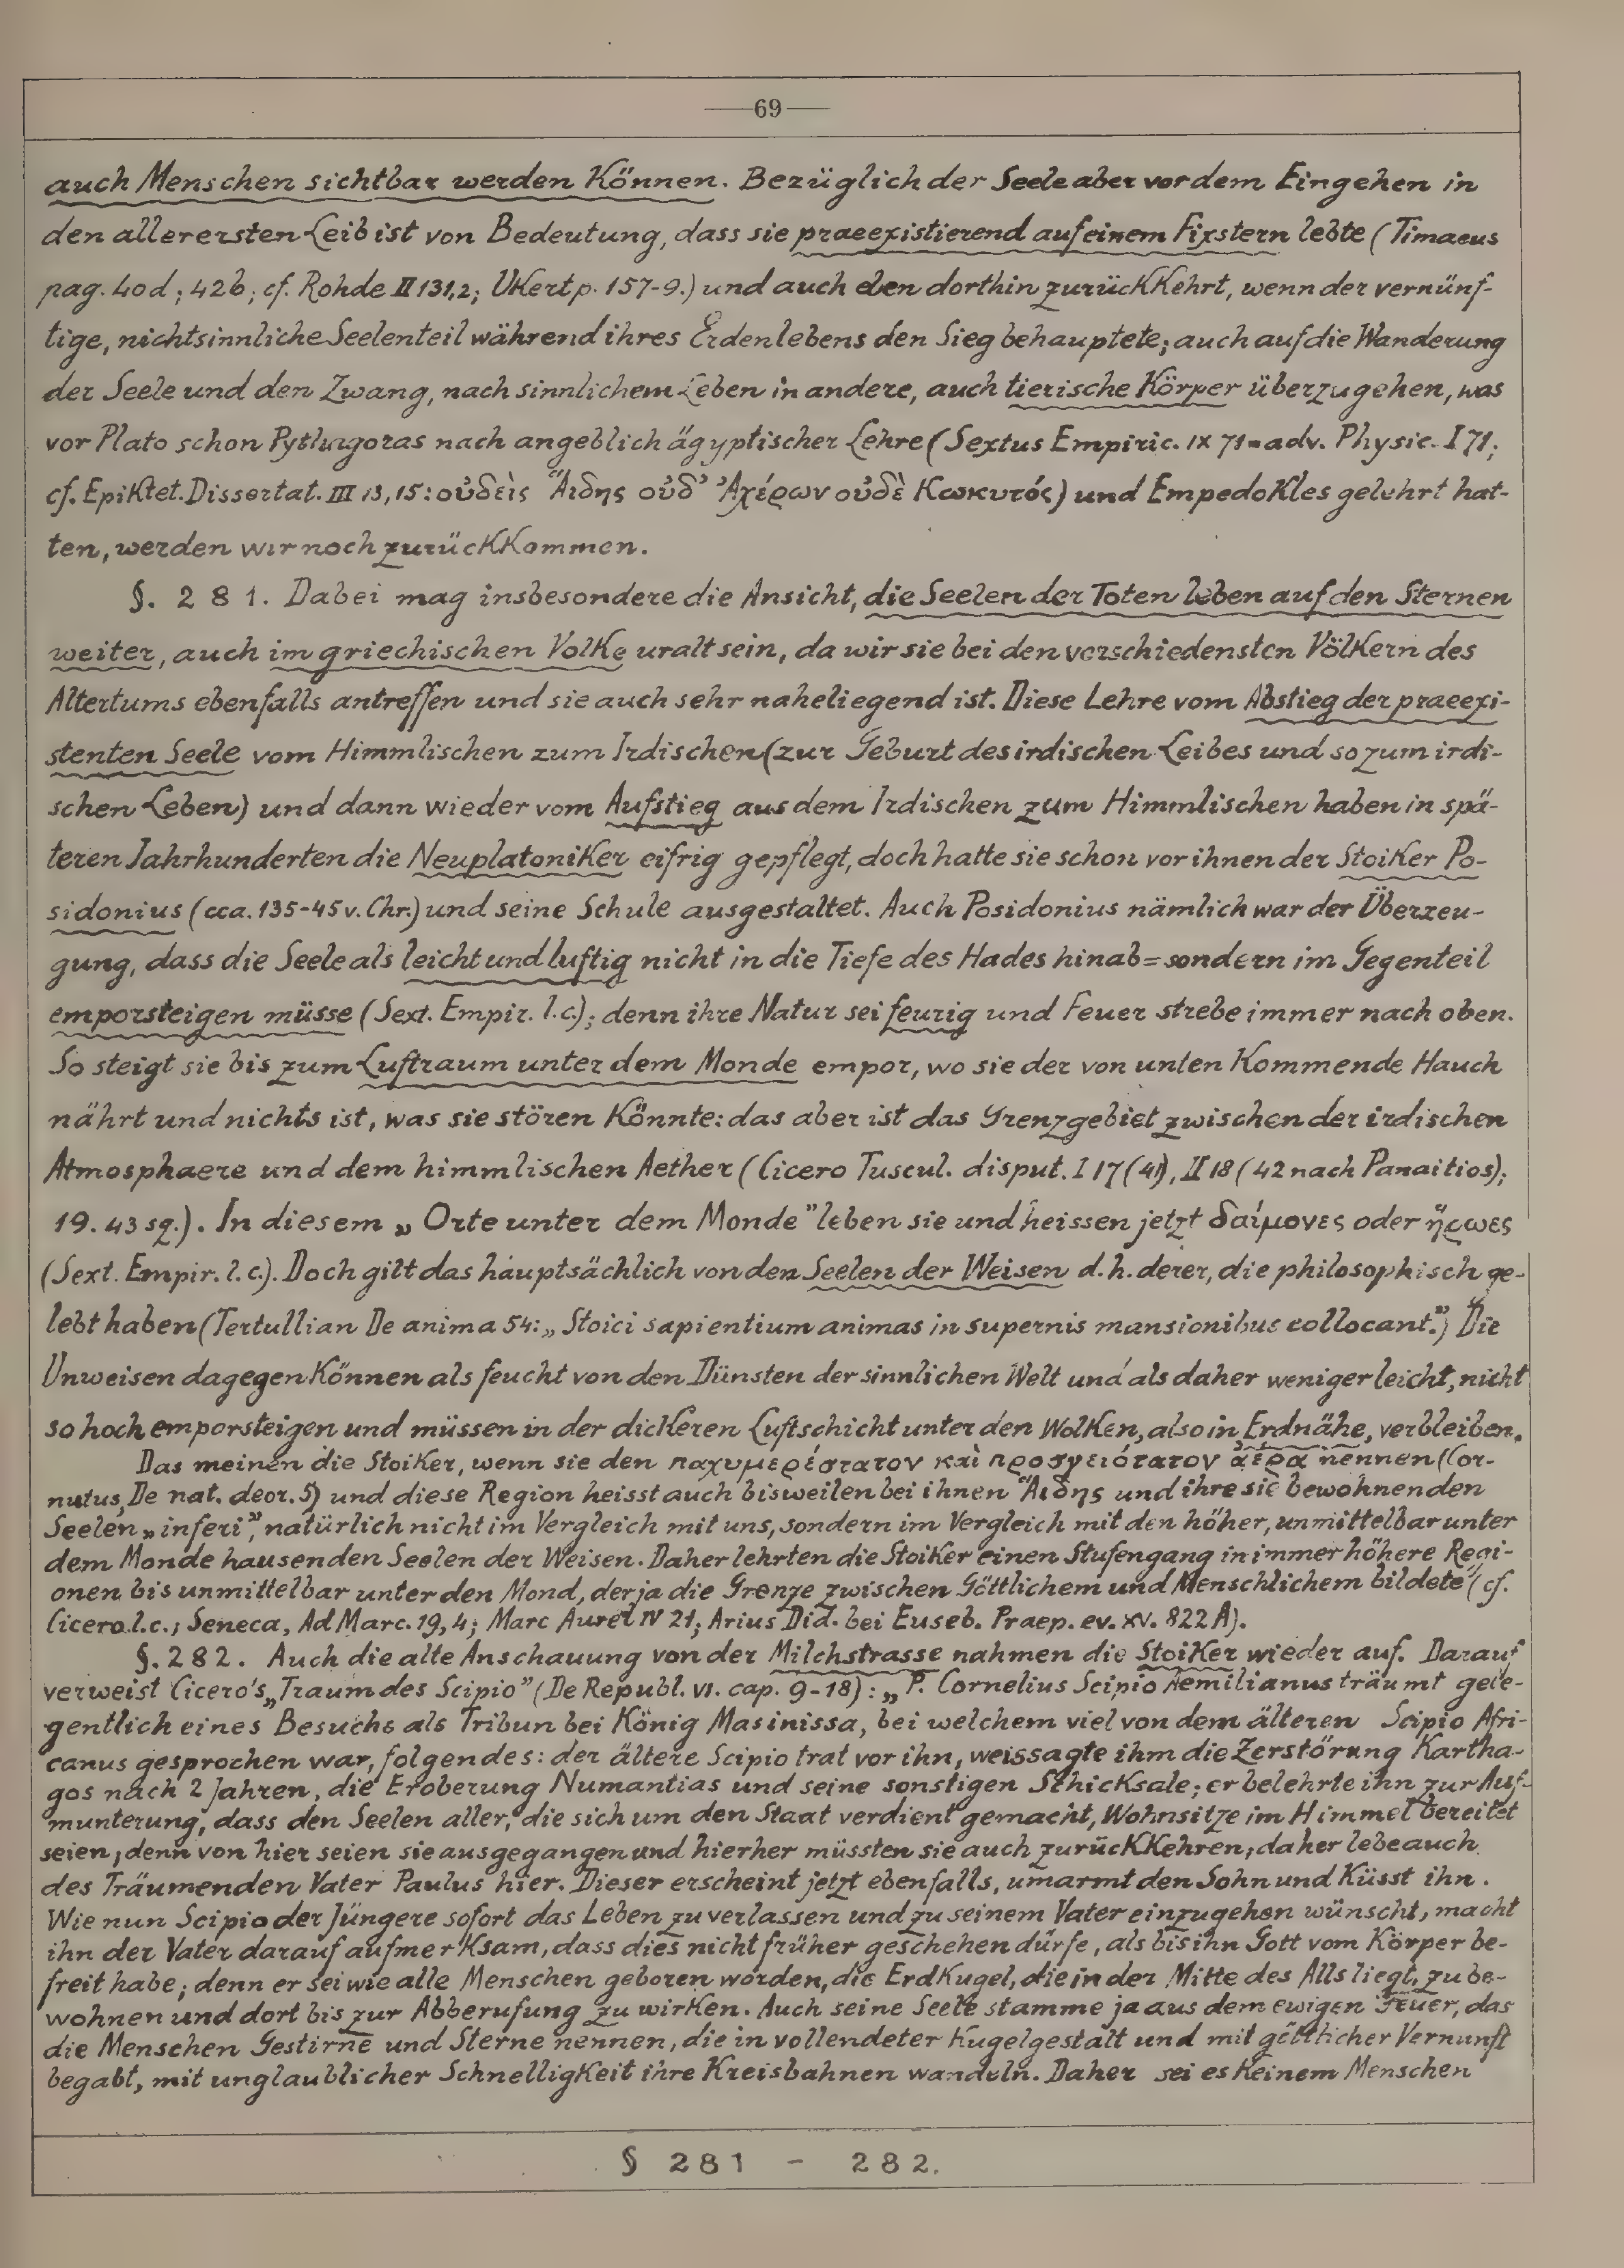 —69—
auch Menschen sichtbar werden können. Bezüglich der Seele aber vor dem Eingehen in
den allerersten Leib ist von Bedeutung, dass sie praeexistierend auf einem Fixstern lebte (Timaeus
pag. 40d; 42b; cf. Rohde II 131,2; Ukert p. 157-9.) und auch eben dorthin zurückkehrt, wenn der vernünf-
tige, nichtsinnliche Seelenteil während ihres Erdenlebens den Sieg behauptete; auch auf die Wanderung
der Seele und den Zwang, nach sinnlichem Leben in andere, auch tierische Körper überzugehen, was
vor Plato schon Pythagoras nach angeblich ägyptischer Lehre (Sextus Empiric. IX 71 = adv. Physic. I 71;
cf. Epiktet. Dissertat. III 13,15: οὐδεὶς Ἅιδης οὐδ' Ἀχέρων οὐδὲ Κωκυτός) und Empedokles gelehrt hat-
ten, werden wir noch zurückkommen.
§. 281. Dabei mag insbesondere die Ansicht, die Seelen der Toten leben auf den Sternen
weiter, auch im griechischen Volke uralt sein, da wir sie bei den verschiedensten Völkern des
Altertums ebenfalls antreffen und sie auch sehr naheliegend ist. Diese Lehre vom Abstieg der praeexi-
stenten Seele vom Himmlischen zum Irdischen (zur Geburt des irdischen Leibes und so zum irdi-
schen Leben) und dann wieder vom Aufstieg aus dem Irdischen zum Himmlischen haben in spä-
teren Jahrhunderten die Neuplatoniker eifrig gepflegt, doch hatte sie schon vor ihnen der Stoiker Po-
sidonius (cca. 135-45 v. Chr.) und seine Schule ausgestaltet. Auch Posidonius nämlich war der Überzeu-
gung, dass die Seele als leicht und luftig nicht in die Tiefe des Hades hinab= sondern im Gegenteil
emporsteigen müsse (Sext. Empir. l.c.); denn ihre Natur sei feurig und Feuer strebe immer nach oben.
So steigt sie bis zum Luftraum unter dem Monde empor, wo sie der von unten kommende Hauch
nährt und nichts ist, was sie stören könnte: das aber ist das Grenzgebiet zwischen der irdischen
Atmosphaere und dem himmlischen Aether (Cicero Tuscul. disput. I 17 (41), II 18 (42 nach Panaitios);
19. 43 sq.). In diesem „Orte unter dem Monde" leben sie und heissen jetzt δαίμονες oder ἥρωες
(Sext. Empir. l. c.). Doch gilt das hauptsächlich von den Seelen der Weisen d. h. derer, die philosophisch ge-
lebt haben (Tertullian De anima 54: „Stoici sapientium animas in supernis mansionibus collocant".) Die
Unweisen dagegen können als feucht von den Dünsten der sinnlichen Welt und als daher weniger leicht, nicht
so hoch emporsteigen und müssen in der dickeren Luftschicht unter den Wolken, also in Erdnähe, verbleiben.
Das meinen die Stoiker, wenn sie den παχυμερέστατον καὶ προσγειότατον ἀέρα nennen (Cor-
nutus, De nat. deor. 5) und diese Region heisst auch bisweilen bei ihnen Ἅιδης und ihre sie bewohnenden
Seelen „inferi", natürlich nicht im Vergleich mit uns, sondern im Vergleich mit den höher, unmittelbar unter
dem Monde hausenden Seelen der Weisen. Daher lehrten die Stoiker einen Stufengang in immer höhere Regi-
onen bis unmittelbar unter den Mond, der ja die Grenze zwischen Göttlichem und Menschlichem bildete" (cf.
Cicero l. c.; Seneca, Ad Marc. 19, 4; Marc Aurel IV 21; Arius Did. bei Euseb. Praep. ev. XV. 822 A).
§. 282. Auch die alte Anschauung von der Milchstrasse nahmen die Stoiker wieder auf. Darauf
verweist Cicero's „Traum des Scipio" (De Republ. VI. cap. 9-18): „P. Cornelius Scipio Aemilianus träumt gele-
gentlich eines Besuchs als Tribun bei König Masinissa, bei welchem viel von dem älteren Scipio Afri-
canus gesprochen war, folgendes: der ältere Scipio trat vor ihn, weissagte ihm die Zerstörung Kartha-
gos nach 2 Jahren, die Eroberung Numantias und seine sonstigen Schicksale; er belehrte ihn zur Auf-
munterung, dass den Seelen aller, die sich um den Staat verdient gemacht, Wohnsitze im Himmel bereitet
seien, denn von hier seien sie ausgegangen und hierher müssten sie auch zurückkehren; daher lebe auch
des Träumenden Vater Paulus hier. Dieser erscheint jetzt ebenfalls, umarmt den Sohn und küsst ihn.
Wie nun Scipio der Jüngere sofort das Leben zu verlassen und zu seinem Vater einzugehen wünscht, macht
ihn der Vater darauf aufmerksam, dass dies nicht früher geschehen dürfe, als bis ihn Gott vom Körper be-
freit habe; denn er sei wie alle Menschen geboren worden, die Erdkugel, die in der Mitte des Alls liegt, zu be-
wohnen und dort bis zur Abberufung zu wirken. Auch seine Seele stamme ja aus dem ewigen Feuer, das
die Menschen Gestirne und Sterne nennen, die in vollendeter Kugelgestalt und mit göttlicher Vernunft
begabt, mit unglaublicher Schnelligkeit ihre Kreisbahnen wandeln. Daher sei es keinem Menschen
§ 281 - 282.